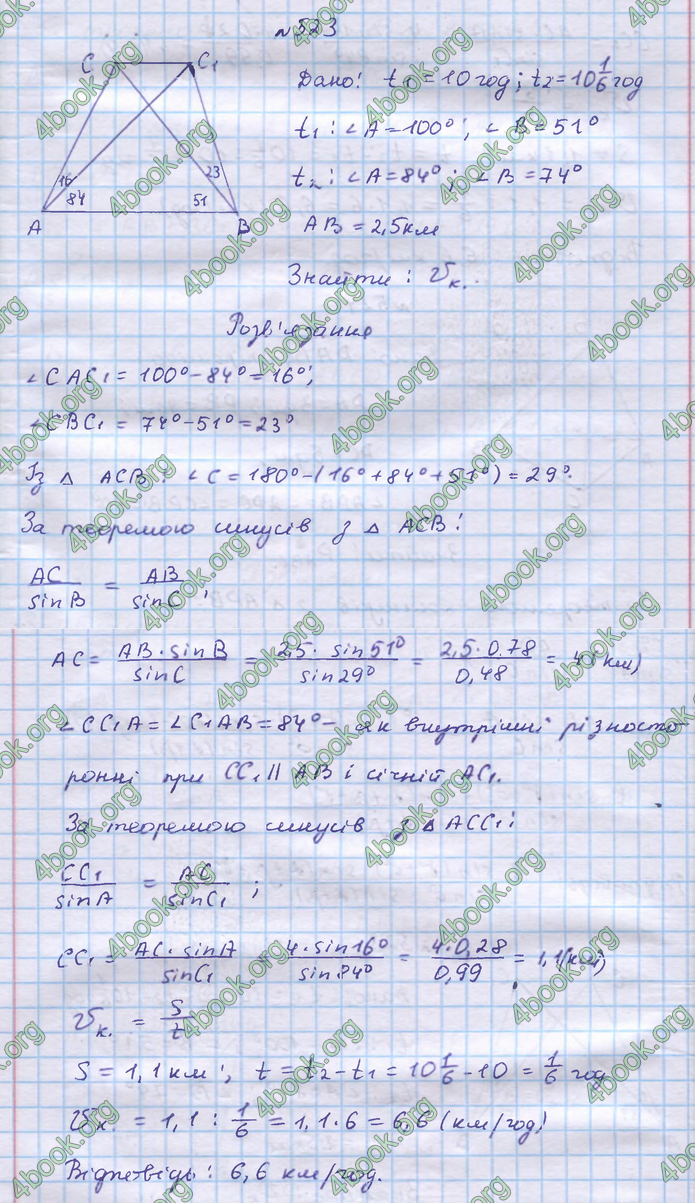 №523
C C₁
Дано: t₁ = 10 год; t₂ = 10 1/6 год
t₁: ∠A = 100°; ∠B = 51°
16 23
t₂: ∠A = 84°; ∠B = 74°
84 51
A B
AB = 2,5км
Знайти: 𝒱к.
Розв'язання
∠CAC₁ = 100° - 84° = 16°;
∠CBC₁ = 74° - 51° = 23°
Із △ ACB: ∠C = 180° - (16° + 84° + 51°) = 29°.
За теоремою синусів з △ ACB:
AC/sinB = AB/sinC;
AC = AB·sinB/sinC = 2,5·sin51°/sin29° = 2,5·0,78/0,48 = 4(км)
∠CC₁A = ∠C₁AB = 84° - як внутрішні різносто
ронні при CC₁ || AB і січній AC₁.
За теоремою синусів з △ACC₁:
CC₁/sinA = AC/sinC₁;
CC₁ = AC·sinA/sinC₁ = 4·sin16°/sin84° = 4·0,28/0,99 = 1,1(км)
𝒱к. = S/t
S = 1,1 км; t = t₂ - t₁ = 10 1/6 - 10 = 1/6 год
𝒱к. = 1,1 : 1/6 = 1,1·6 = 6,6 (км/год)
Відповідь: 6,6 км/год.
4book.org